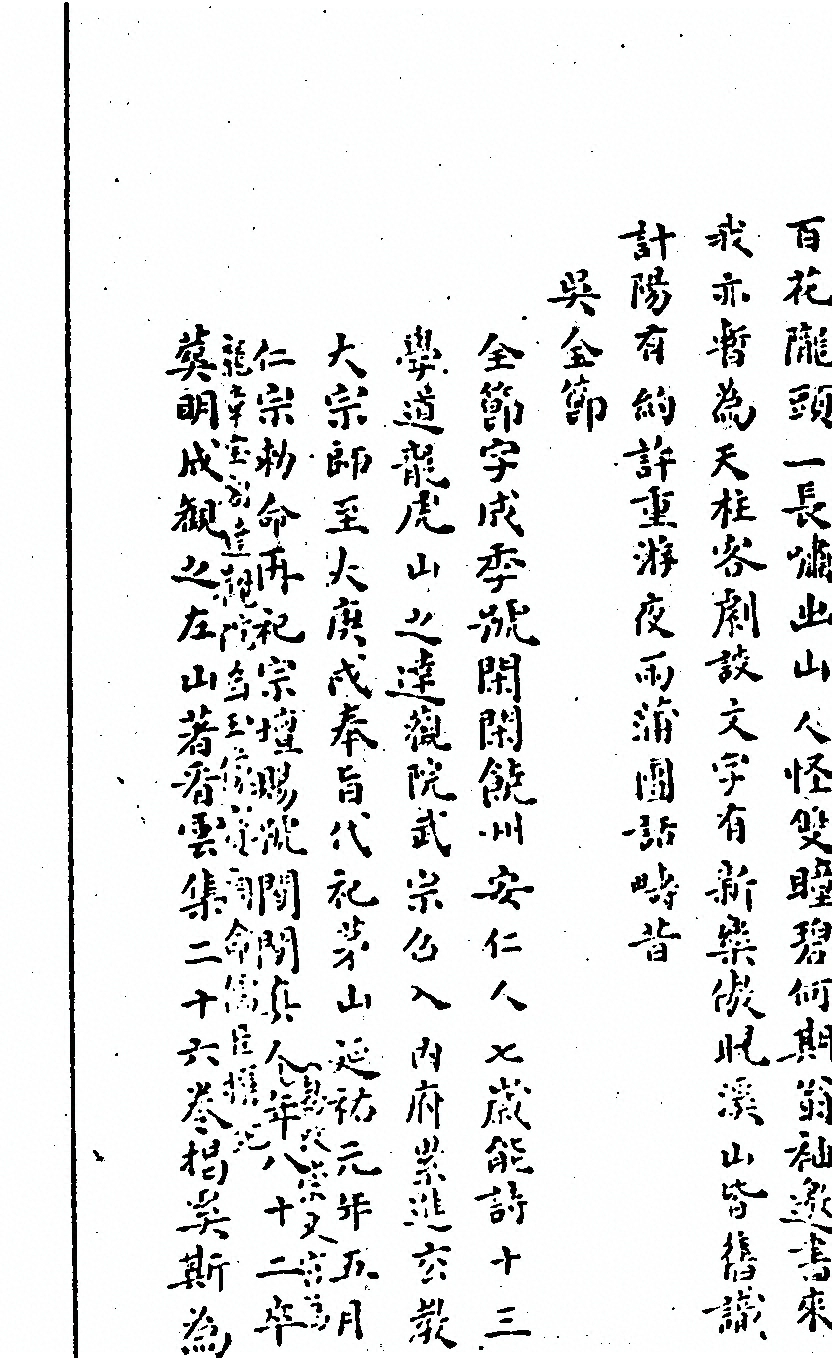 百花隴頭一長嘯出山人怪雙瞳碧何期翁袖邀書來
我亦暫為天柱客劇談文字有新樂傲睨溪山皆舊識
計陽有約許重游夜雨蒲團話疇昔
吳全節
全節字成季號閑閑饒州安仁人七歲能詩十三
學道龍虎山之達觀院武宗召入內府累進玄教
大宗師至大庚戌奉旨代祀茅山延祐元年五月
仁宗勅命再祀宗壇賜號閑閑真人年八十二卒
龍章宝別達觀院為玉命儒臣撰
蓂明成觀之左山著看雲集二十六卷揭奚斯為